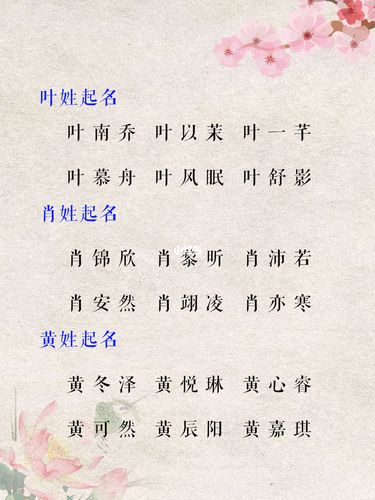 叶姓起名
叶南乔 叶以茉 叶一芊
叶慕舟 叶风眠 叶舒影
肖姓起名
肖锦欣 肖黎昕 肖沛若
肖安然 肖翊凌 肖亦寒
黄姓起名
黄冬泽 黄悦琳 黄心睿
黄可然 黄辰阳 黄嘉琪